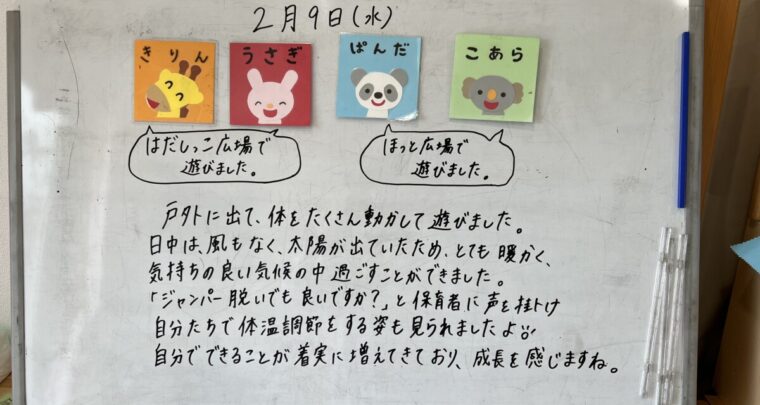 2月9日(水)
きりん
うさぎ
ぱんだ
こあら
はだしっこ広場で
遊びました。
ほっと広場で
遊びました。
戸外に出て、体をたくさん動かして遊びました。
日中は、風もなく、太陽が出ていたため、とても暖かく、
気持ちの良い気候の中過ごすことができました。
「ジャンパー脱いでも良いですか?」と保育者に声を掛け
自分たちで体温調節をする姿も見られましたよ
自分でできることが着実に増えてきており、成長を感じますね。